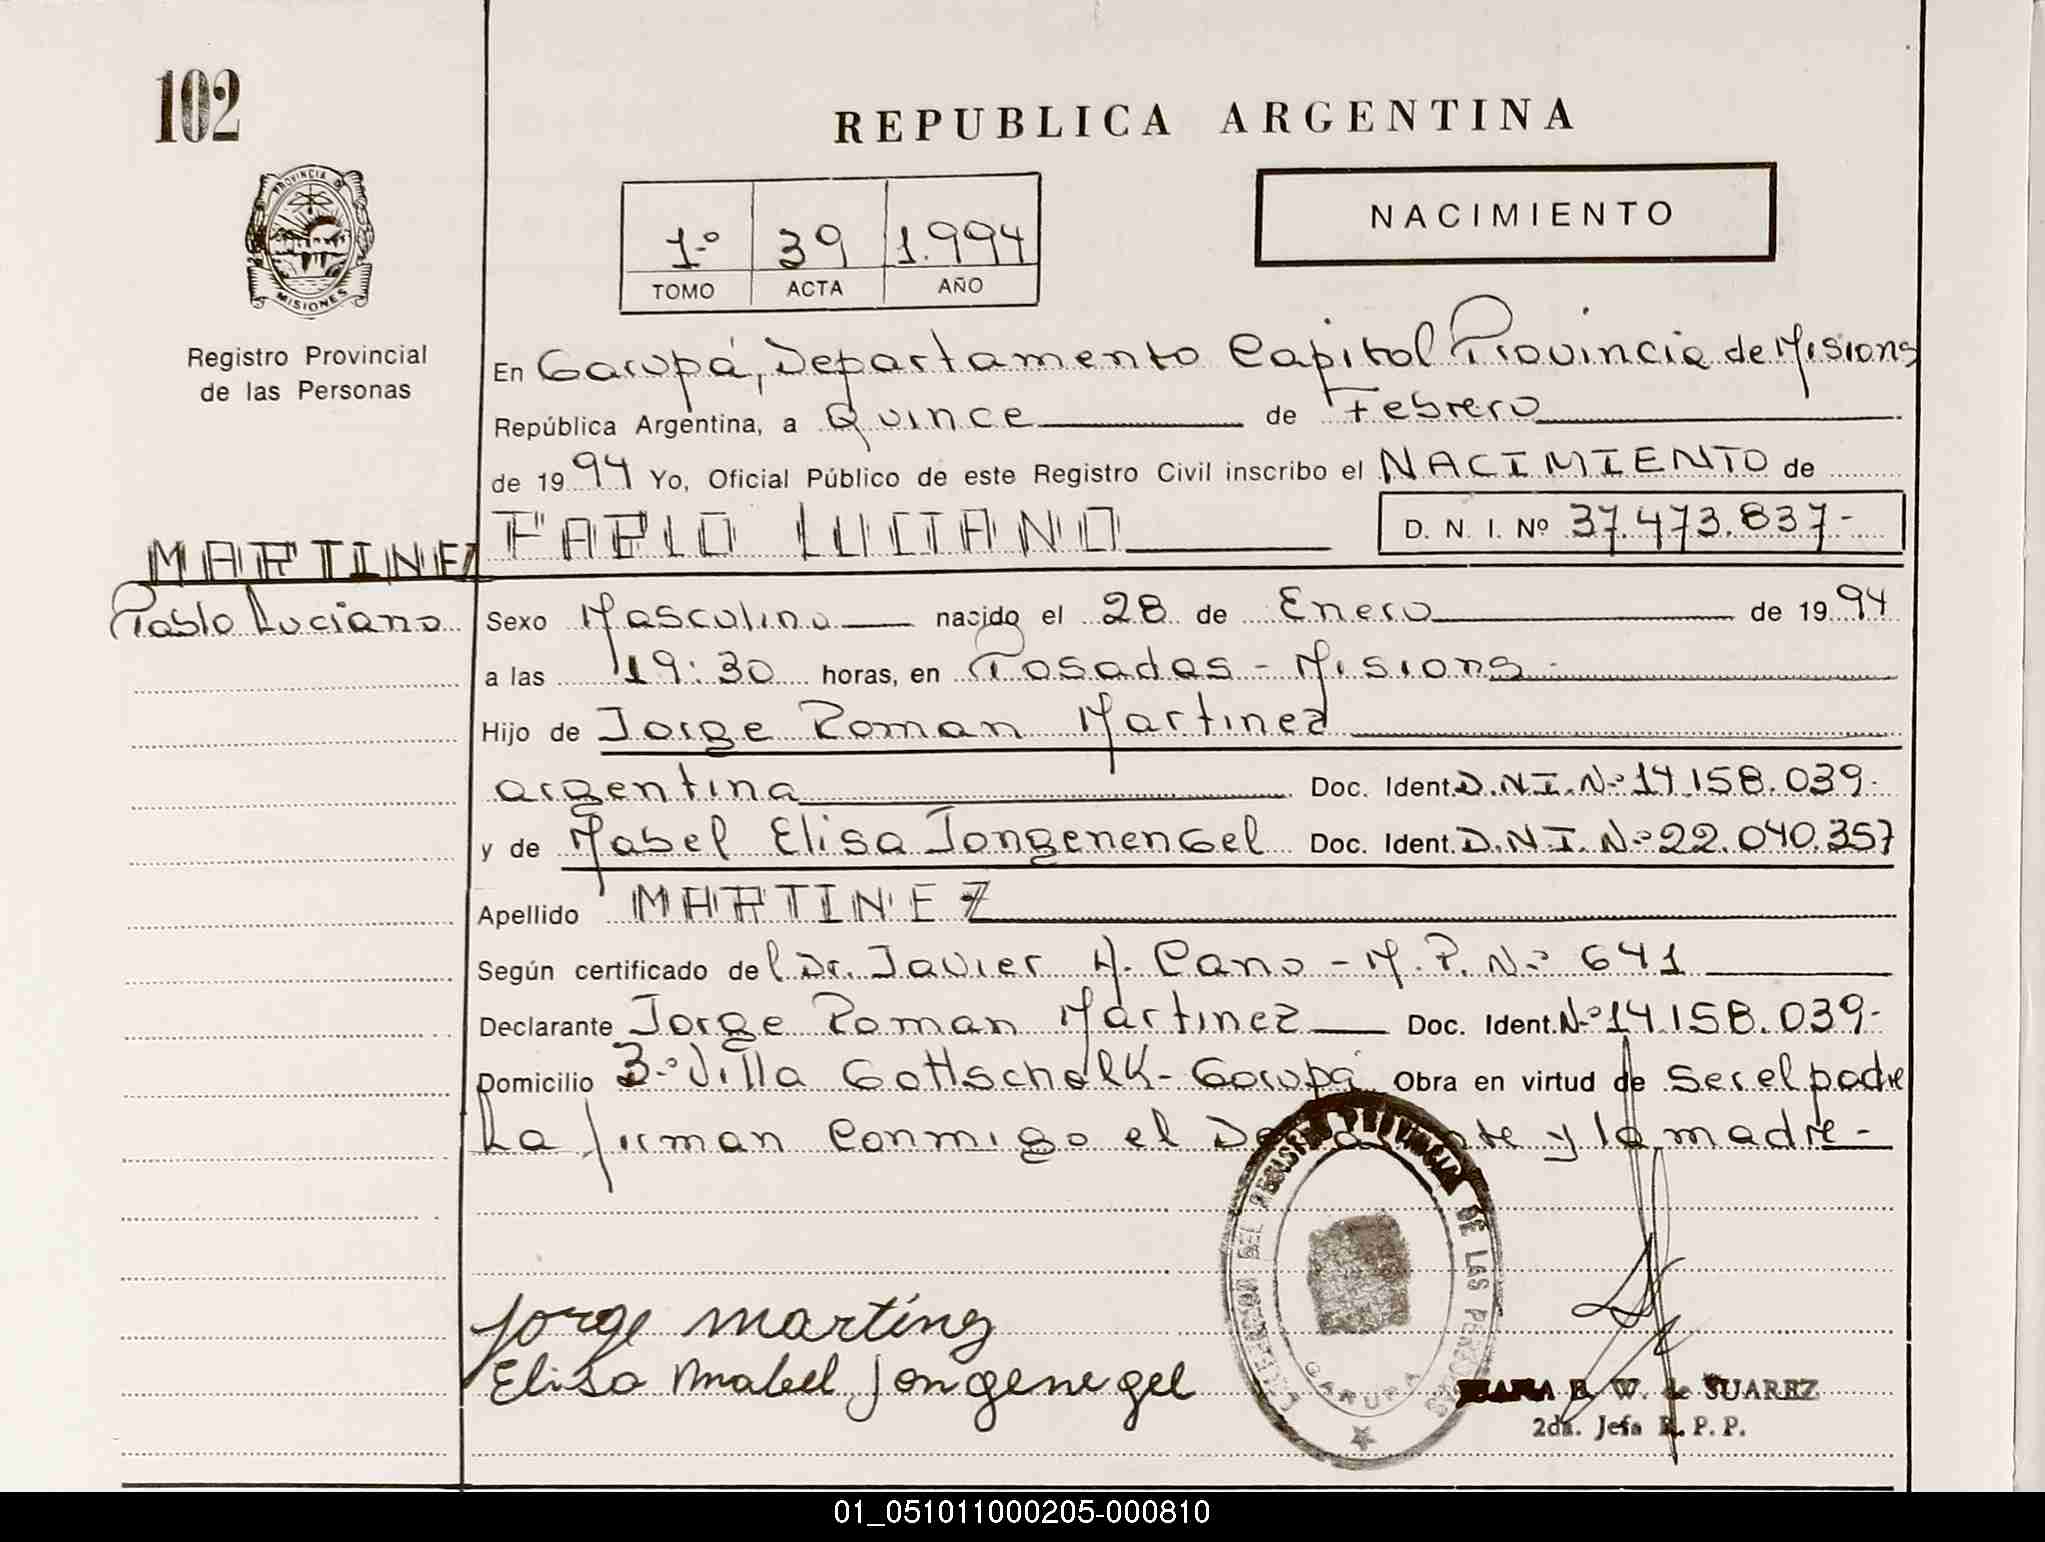 102
REPUBLICA ARGENTINA
PROVINCIA DE
MISIONES
1º 39 1.994
TOMO ACTA AÑO
NACIMIENTO
Registro Provincial
de las Personas
En Garupá, Departamento Capital Provincia de Misiones
República Argentina, a Quince de Febrero
de 1994 Yo, Oficial Público de este Registro Civil inscribo el NACIMIENTO de
PABLO LUCIANO D. N. I. Nº 37.473.837-
MARTINEZ
Pablo Luciano
Sexo Masculino nacido el 28 de Enero de 1994
a las 19:30 horas, en Posadas - Misiones -
Hijo de Jorge Roman Martinez
argentina Doc. Ident. D.N.I. Nº 14.158.039-
y de Mabel Elisa Jongenengel Doc. Ident. D.N.I. Nº 22.040.357
Apellido MARTINEZ
Según certificado del Dr. Javier A. Cano - M.P. Nº 641
Declarante Jorge Roman Martinez Doc. Ident. Nº 14.158.039-
Domicilio 3º Villa Gottschalk - Garupá Obra en virtud de ser el padre
La firman conmigo el y la madre -
DEL REGISTRO PROVINCIAL DE LAS PERSONAS
GARUPA
Jorge Martines
Elisa Mabel Jongenegel
E. W. de SUAREZ
2da. Jefa R. P. P.
01_051011000205-000810